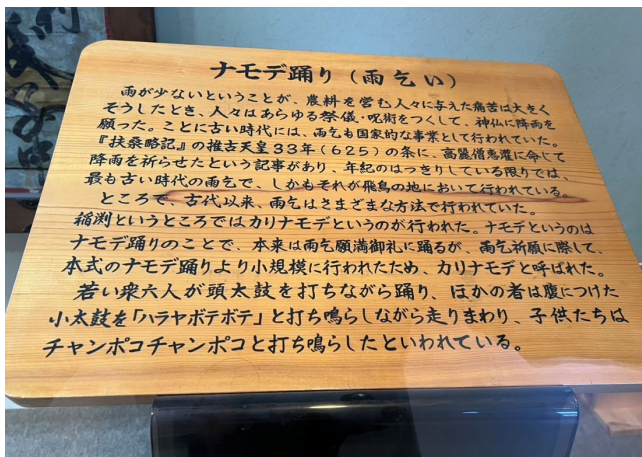 ナモデ踊り(雨乞い)
雨が少ないということが、農耕を営む人々に与えた痛苦は大きく
そうしたとき、人々はあらゆる祭儀・呪術をつくして、神仏に降雨を
願った。ことに古い時代には、雨乞も国家的な事業として行われていた。
『扶桑略記』の推古天皇33年(625)の条に、高麗僧恵灌に命じて
降雨を祈らせたという記事があり、年紀のはっきりしている限りでは、
最も古い時代の雨乞で、しかもそれが飛鳥の地において行われている。
ところで、古代以来、雨乞はさまざまな方法で行われていた。
稲渕というところではカリナモデというのが行われた。ナモデというのは
ナモデ踊りのことで、本来は雨乞願満御礼に踊るが、雨乞祈願に際して、
本式のナモデ踊りより小規模に行われたため、カリナモデと呼ばれた。
若い衆六人が頭太鼓を打ちながら踊り、ほかの者は腹につけた
小太鼓を「ハラヤボテボテ」と打ち鳴らしながら走りまわり、子供たちは
チャンポコチャンポコと打ち鳴らしたといわれている。